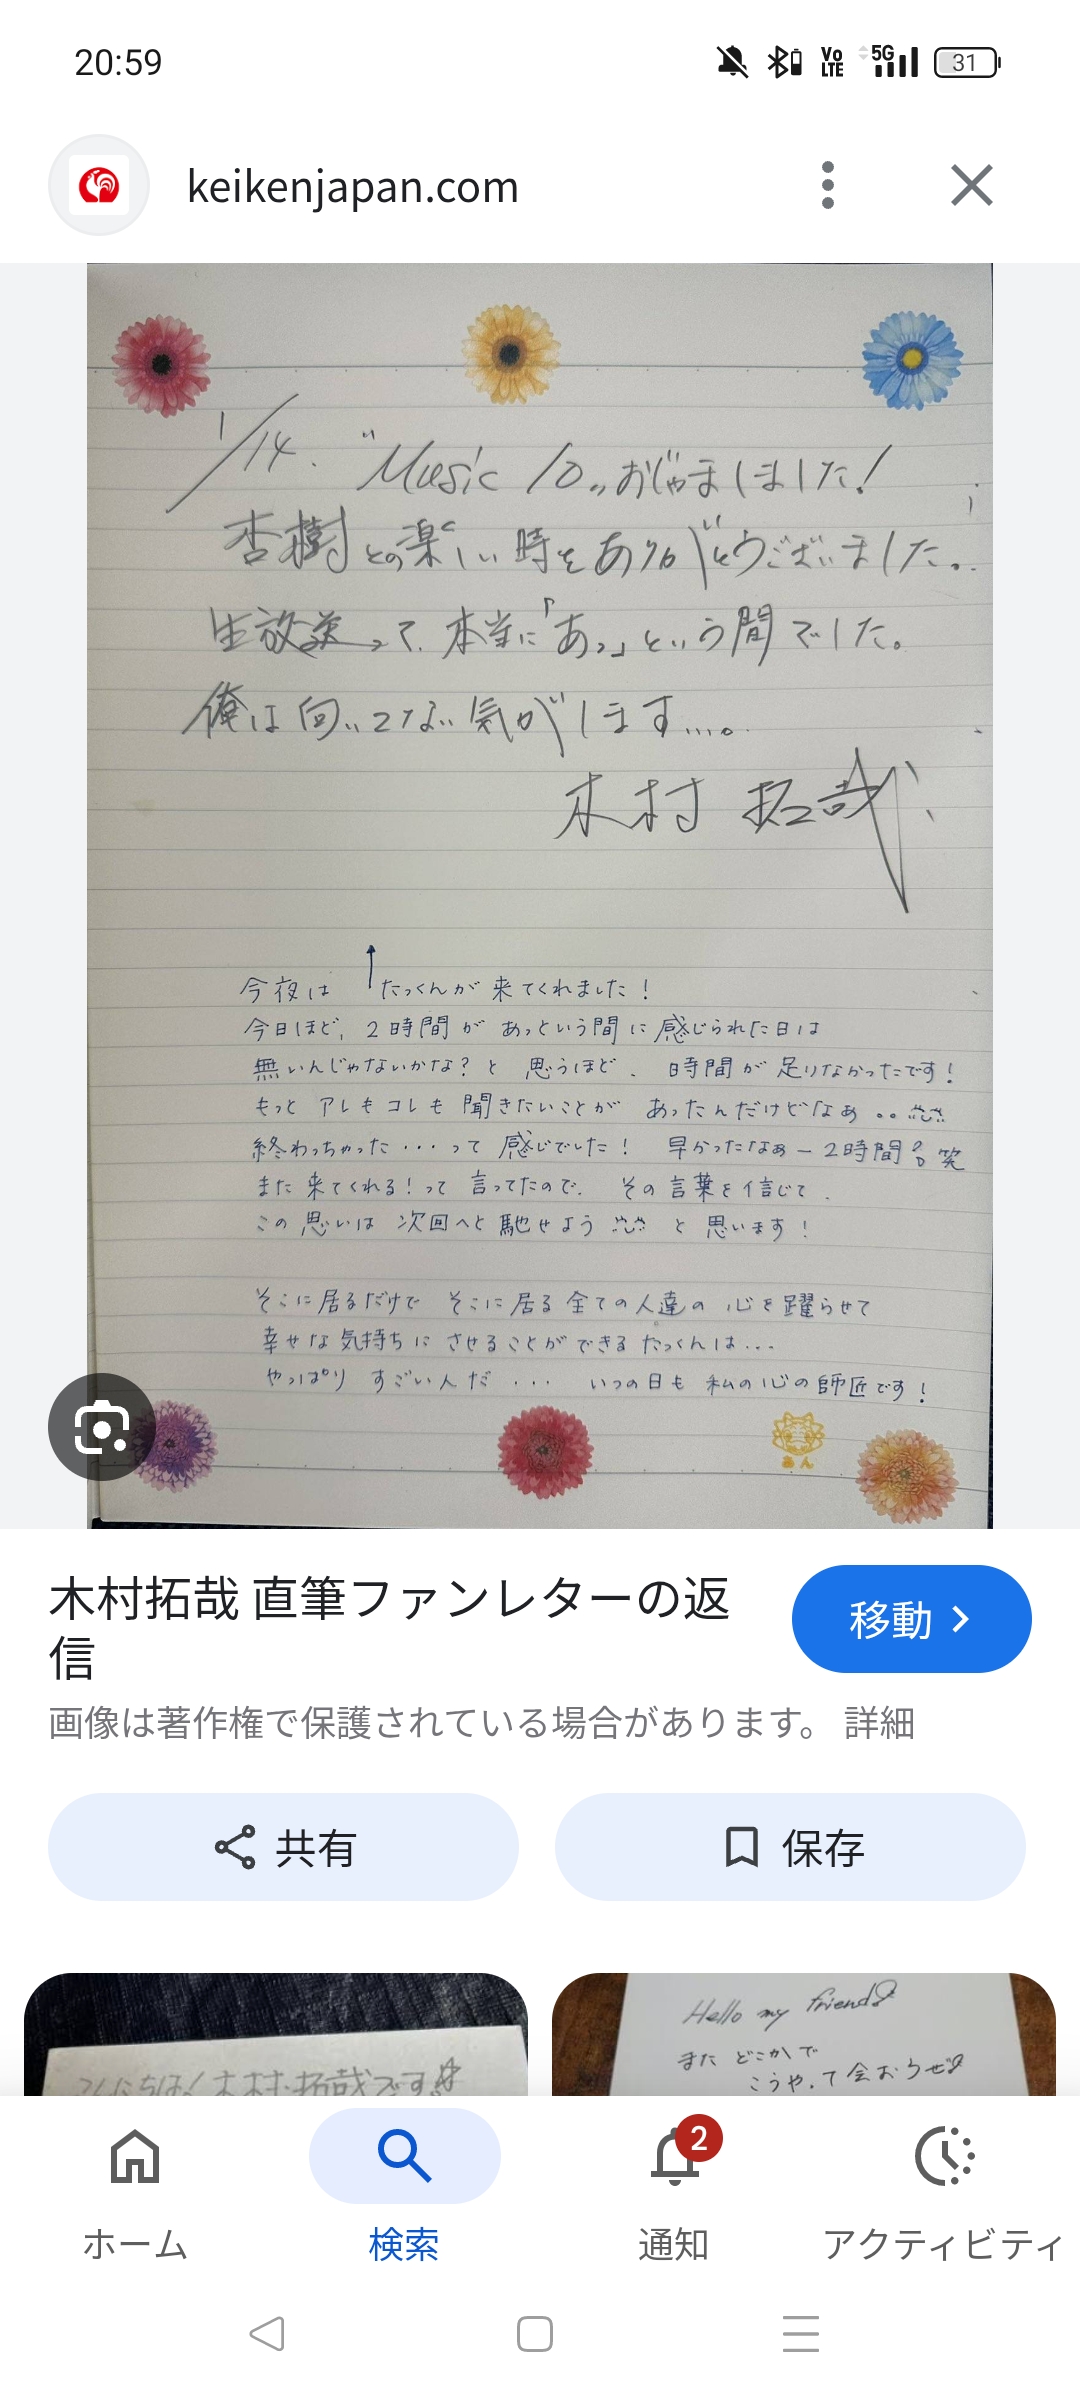 20:59
Vo LTE 5G 31
keikenjapan.com
1/14. "Music 10„おじゃましました!
杏樹との楽しい時をありがとうございました。
生放送って、本当に「あっ」という間でした。
俺は向いてない気がします....。
木村 拓哉
今夜は たっくんが 来てくれました!
今日ほど、2時間が あっという間に 感じられた日は
無いんじゃないかな?と 思うほど、時間が 足りなかったです!
もっと アレもコレも 聞きたいことが あったんだけどなぁ
終わっちゃった・・・って 感じでした! 早かったなぁー2時間 笑
また 来てくれる!って 言ってたので、その言葉を信じて、
この思いは 次回へと 馳せよう と 思います!
そこに居るだけで そこに居る全ての人達の 心を躍らせて
幸せな気持ちに させることができる たっくんは・・・
やっぱり すごい人だ ・・・ いつの日も 私の心の師匠です!
あん
木村拓哉 直筆ファンレターの返
信
移動
画像は著作権で保護されている場合があります。 詳細
共有
保存
こんにちは!木村拓哉です
Hello my friend
また どこかで
こうやって会おうぜ
2
ホーム
検索
通知
アクティビティ